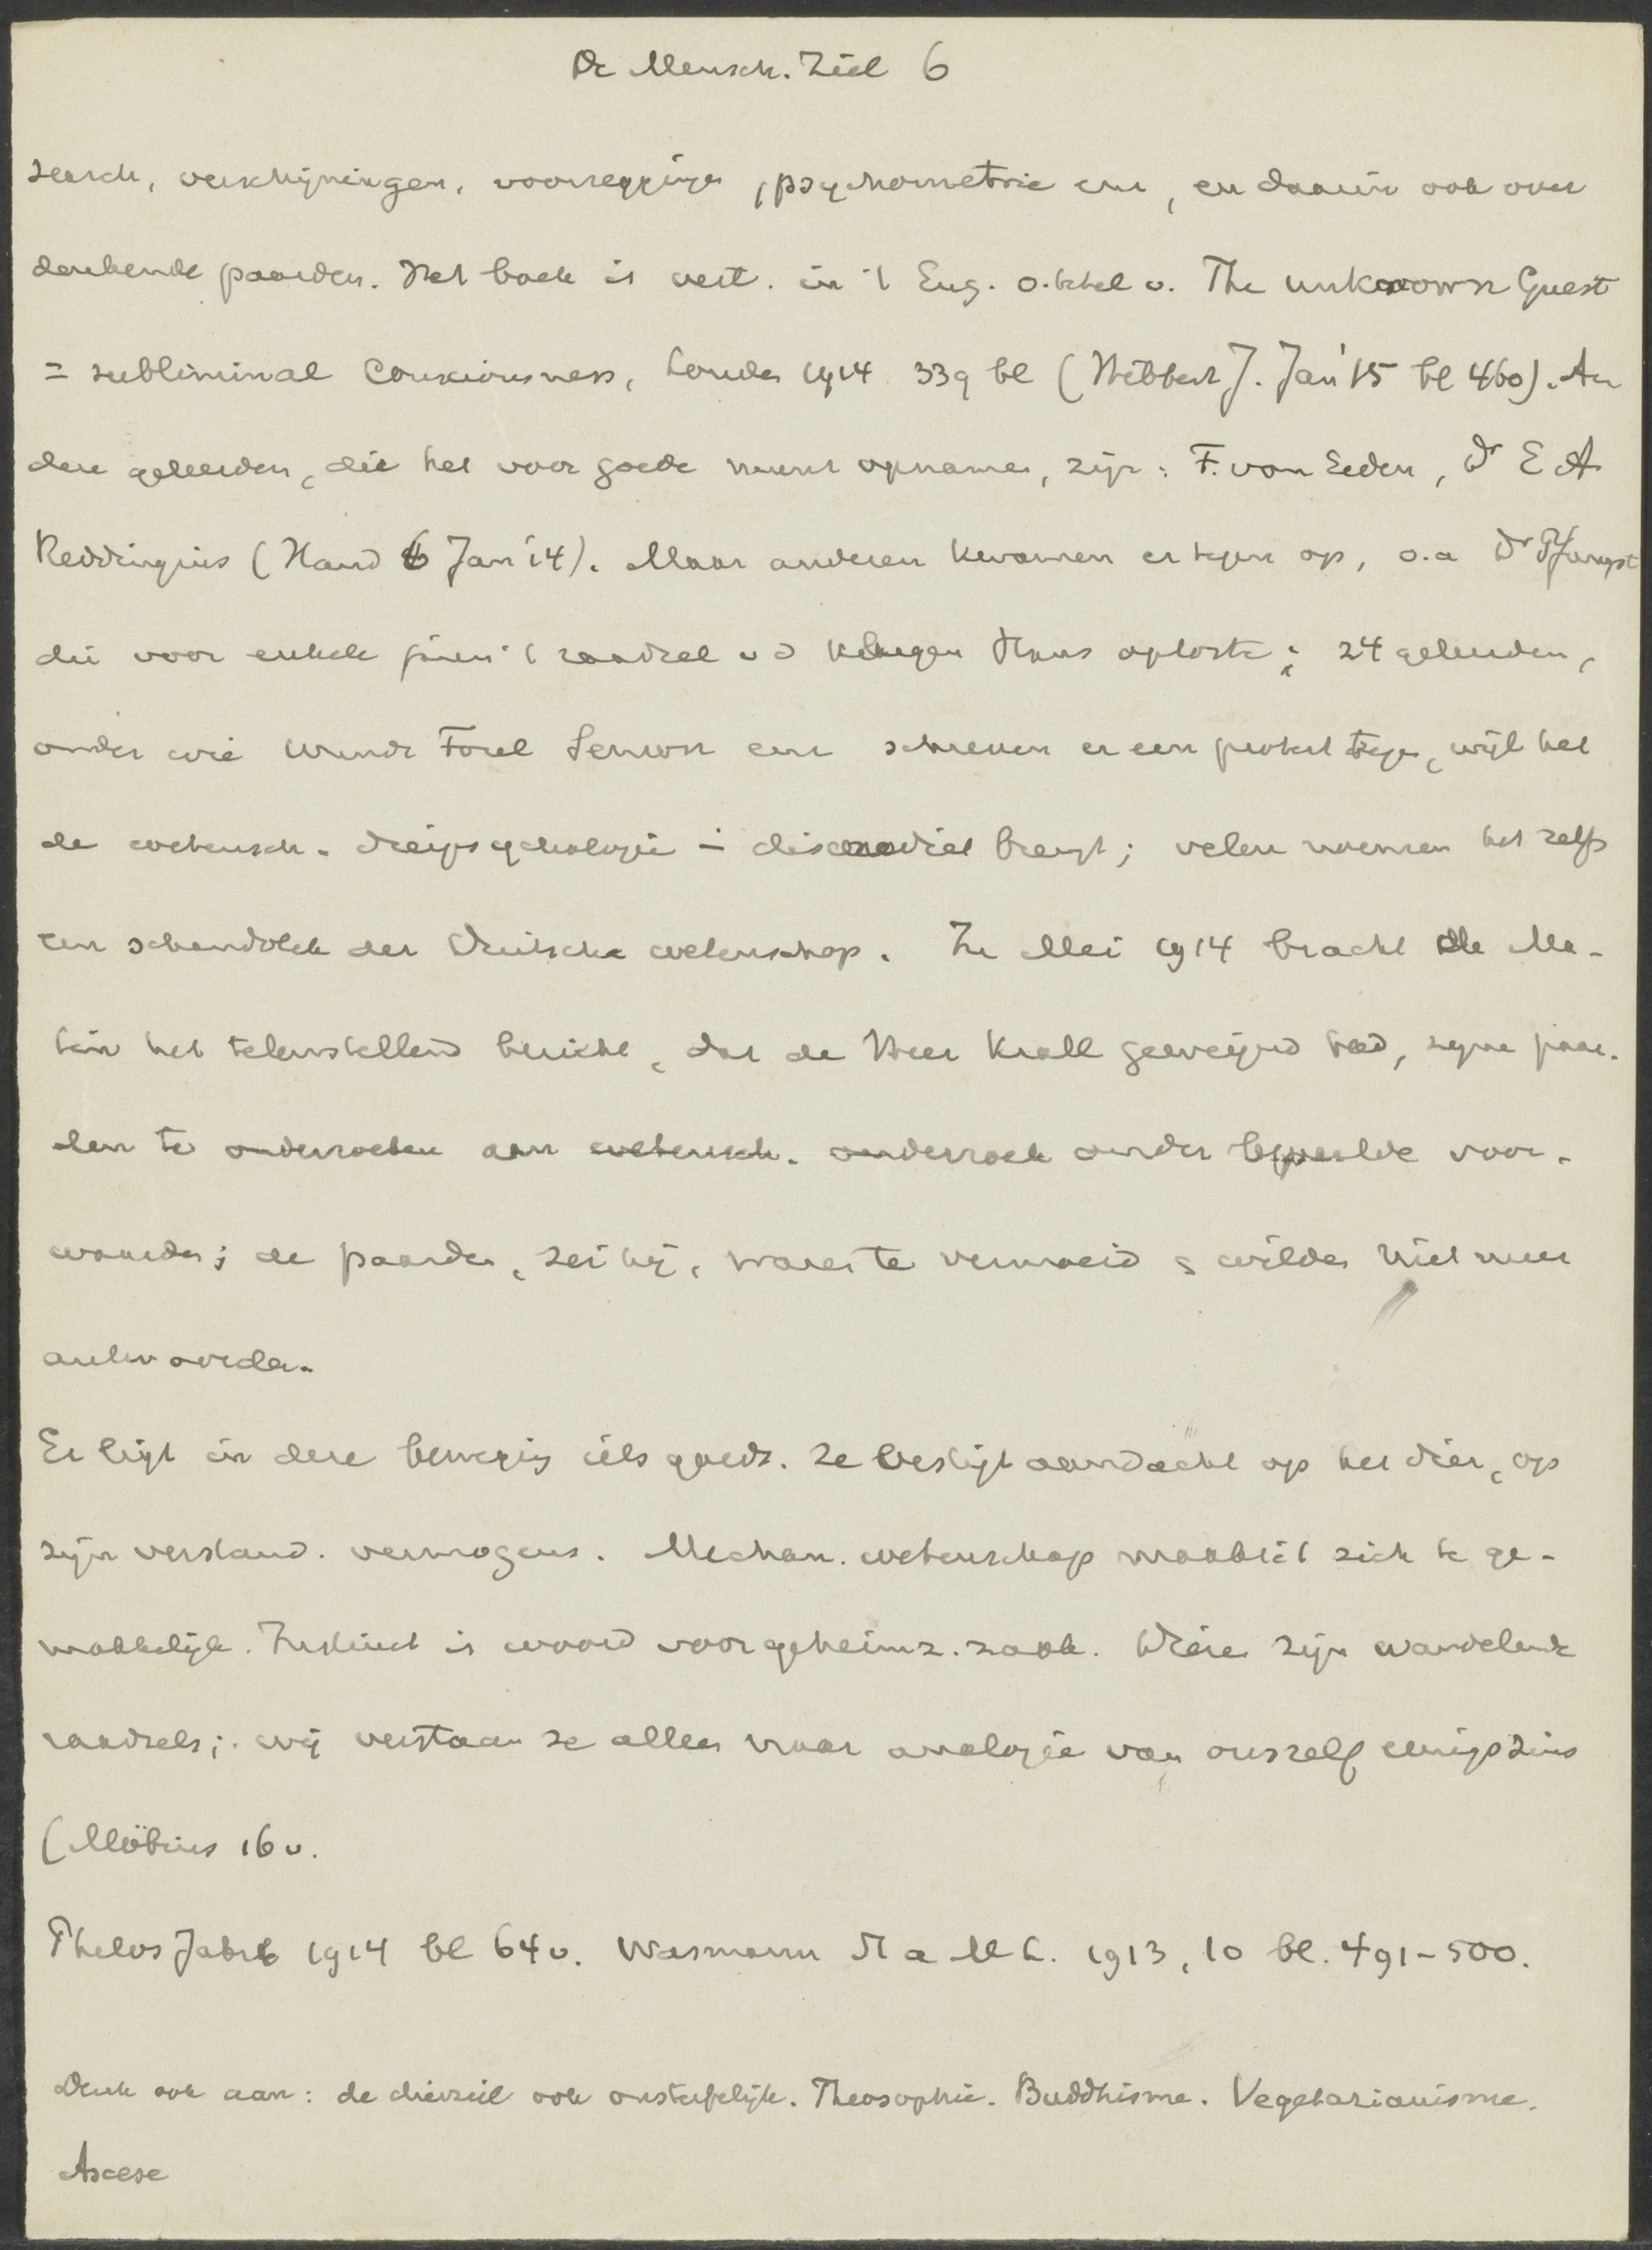 De Mensch. Ziel 6
search, verschijningen, voorzeggingen, psychometrie enz, en daarin ook over
denkende paarden. Het boek is vert. in 't Eng. o. titel v. The unknown Guest
= subliminal Consciousness, Londen 1914 339 bl (Hibbert J. Jan '15 bl 460). An
dere geleerden, die het voor goede munt opnamen, zijn: F. van Eeden, Dr E A
Reddingius (Hand 6 Jan '14). Maar anderen kwamen er tegen op, o.a Dr Pfungst
die voor enkele jaren 't raadsel v d klugen Hans oploste; 24 geleerden,
onder wie Wundt Forel Semon enz schreven er een protest tegen, wijl het
de wetensch. dierpsychologie in discrediet brengt; velen noemen het zelfs
een schandvlek der Duitsche wetenschap. In Mei 1914 bracht de Ma-
tin het teleurstellend bericht, dat de Heer Krall geweigerd had, zijne paar-
den te onderzoeken aan wetensch. onderzoek onder bepaalde voor-
waarden; de paarden, zei hij, waren te vermoeid & wilden niet meer
antwoorden.
Er ligt in deze beweging iets goeds. Ze vestigt aandacht op het dier, op
zijn verstand. vermogens. Mechan. wetenschap maakt 't zich te ge-
makkelijk. Instinct is woord voor geheimz. zaak. Dieren zijn wandelende
raadsels; wij verstaan ze alleen naar analogie van onszelf eenigszins
(Möbius 16 v.
Philos Jahrb 1914 bl 64 v. Wasmann St a M L. 1913, 10 bl. 491-500.
Denk ook aan: de dierziel ook onsterfelijk. Theosophie. Buddhisme. Vegetarianisme.
Ascese